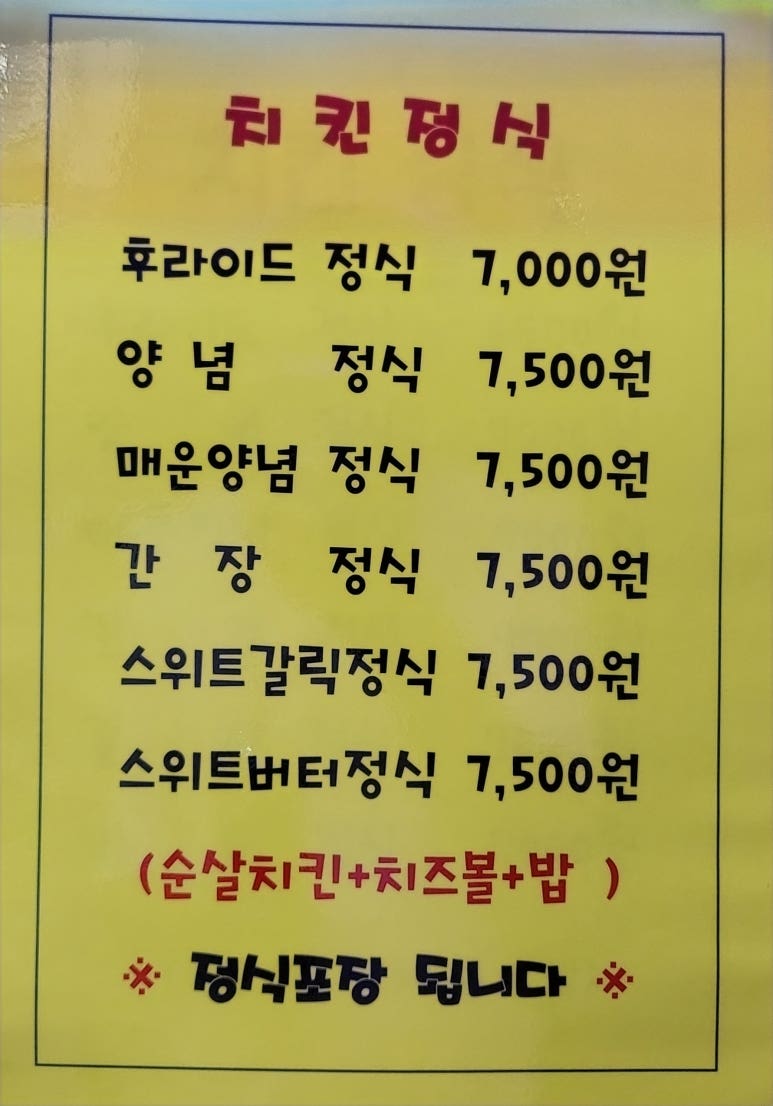 치킨정식
후라이드 정식 7,000원
양 념 정식 7,500원
매운양념 정식 7,500원
간 장 정식 7,500원
스위트갈릭정식 7,500원
스위트버터정식 7,500원
(순살치킨+치즈볼+밥 )
※ 정식포장 됩니다 ※